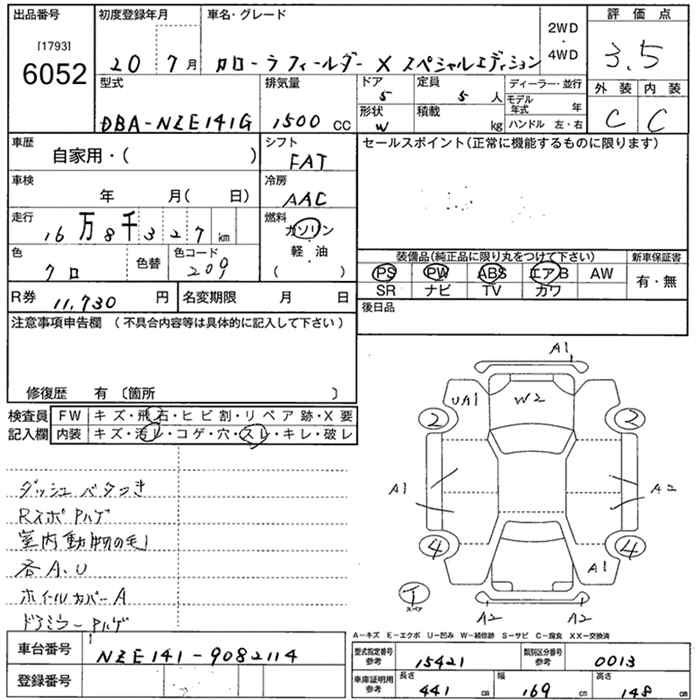 出品番号 初度登録年月 車名・グレード 2WD・4WD 評価点
[1793]
6052 20 7月 カローラフィールダー X スペシャルエディション 3.5
型式 排気量 ドア 5 定員 5 人 ディーラー・並行 外装 内装
DBA-NZE141G 1500 CC 形状 W 積載 kg モデル年式 年 C C
ハンドル 左・右
車歴 自家用・( ) シフト FAT セールスポイント(正常に機能するものに限ります)
車検 年 月( 日) 冷房 AAC
走行 16万8千327km 燃料 ガソリン・軽・油 ( )
色 クロ 色替 色コード 209
装備品(純正品に限り丸をつけて下さい) 新車保証書
PS PW ABS エアB AW 有・無
SR ナビ TV カワ
R券 11,730 円 名変期限 月 日 後日品
注意事項申告欄 (不具合内容等は具体的に記入して下さい)
修復歴 有 〔箇所 〕
検査員 FW キズ・飛石・ヒビ割・リペア跡・X要
記入欄 内装 キズ・汚レ・コゲ・穴・スレ・キレ・破レ
ダッシュベタつき
Rスポ Pハゲ
室内動物の毛
各A.U
ホイールカバーA
ドアミラー Pハゲ
A1
UA1 W2
2 2
A1 A2
4 4
A1
スペア
A2 A2
A-キズ E-エクボ U-凹み W-補修跡 S-サビ C-腐食 XX-交換済
車台番号 NZE141-9082114
登録番号
型式指定番号 参考 15421 類別区分番号 参考 0013
車庫証明用 参考 長さ 441 cm 幅 169 cm 高さ 148 cm